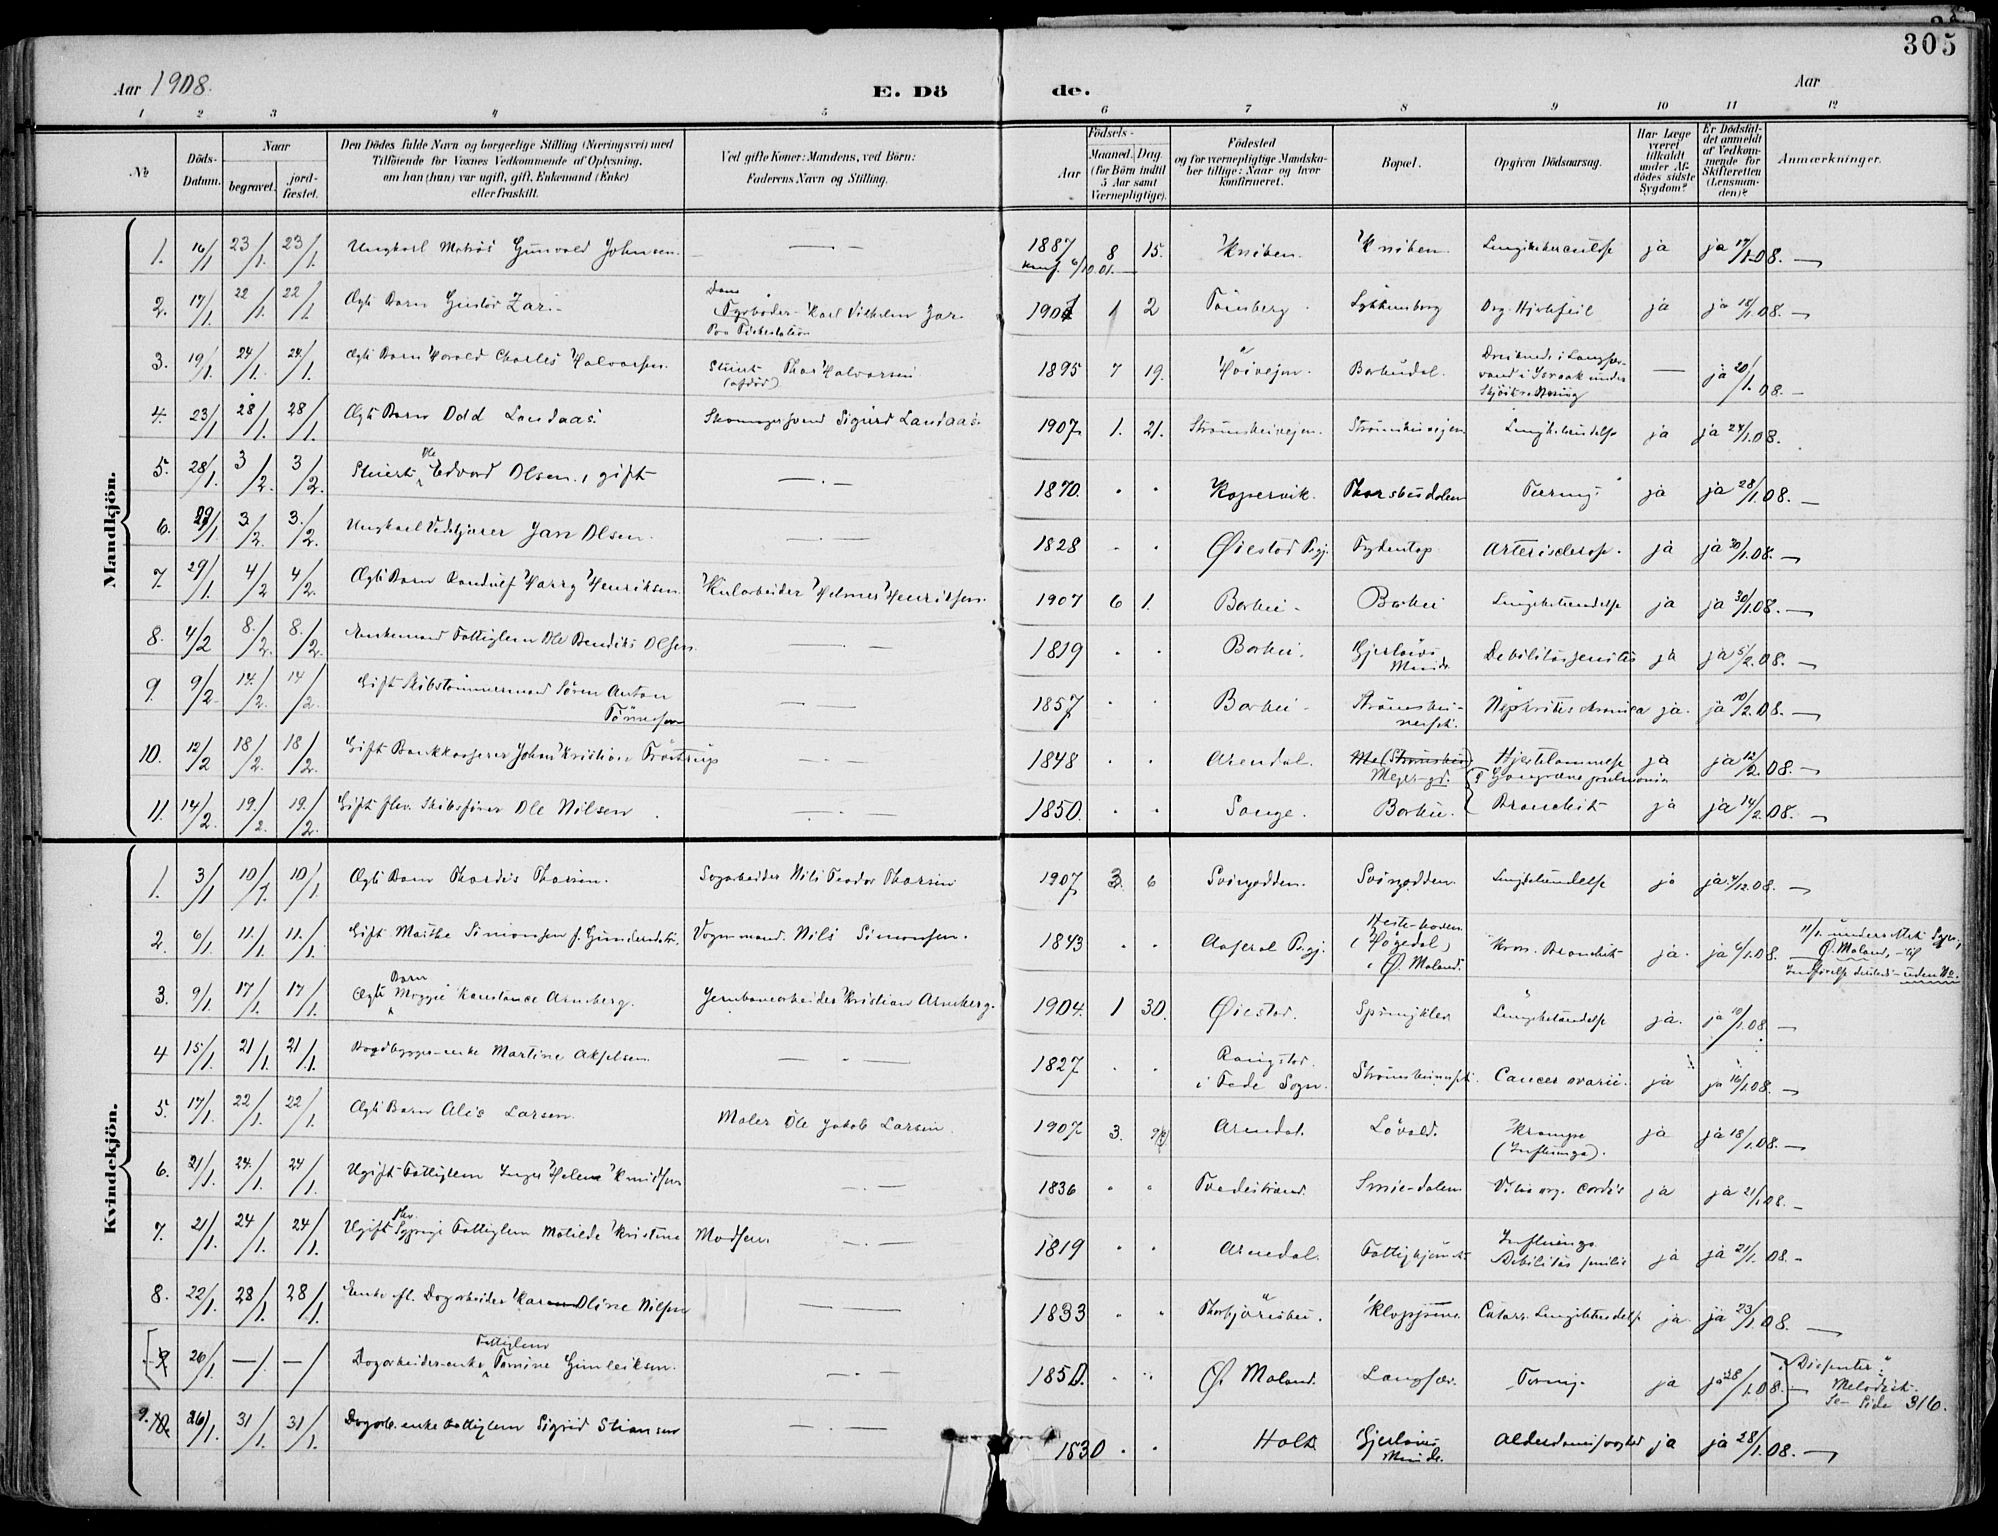 305
Aar 1908.
E. Dö de.
Aar
1 2 3 4 5 6 7 8 9 10 11 12
No
Döds-
Datum.
Naar
begravet.
jord-
fæstet.
Den Dödes fulde Navn og borgerlige Stilling (Næringsvei) med
Tilföiende for Voxnes Vedkommende af Oplysning,
om han (hun) var ugift, gift, Enkemand (Enke)
eller fraskilt.
Ved gifte Koner: Mandens, ved Börn:
Faderens Navn og Stilling.
Födsels-
Aar
Maaned. Dag.
(for Börn indtil
5 Aar samt
Værnepligtige).
Födested
og for værnepligtige Mandska-
ber tillige: Naar og hvor
konfirmeret.
Bopæl.
Opgiven Dödsaarsag.
Har Læge
været
tilkaldt
under Af-
dödes sidste
Sygdom?
Er Dödsfal-
det anmeldt
af Vedkom-
mende for
Skifteretten
(Lensman-
den)?
Anmærkninger.
Mandkjön.
1. 16/1 23/1. 23/1. Ungkarl Matros Gunvald Johnsen. — 1887 8 15. Knöben. Knöben. ja ja 17/1.08. —
konf. 6/10.01.
2. 17/1. 22/1. 22/1. Ægte Barn Gustav Zari. Karl Vilhelm Zar. 1 2 Tönsberg. Lykkensborg Org. Hjertefeil ja ja 18/1.08. —
3. 19/1. 24/1. 24/1. Ægte Barn Harald Charles Halvorsen. Stuert Thor Halvorsen (afdöd) 1895 7 19. Höivejen. Barbudal. — ja 20/1.08. —
4. 23/1 28/1. 28/1. Ægte Barn Odd Landaas. Skomagersvend Sigurd Landaas. 1907. 1. 21. Strömsbuvejen. Strömsbuvejen Lungebetændelse ja ja 24/1.08.
5. 28/1. 3/2. 3/2. Stuert Ole Edvard Olsen, gift — 1870. Kopervik. Thorsbudalen Tæring. ja ja 28/1.08. —
6. 29/1 3./2. 3./2. Ungkarl Jan Olsen. — 1828 Øiestad Pgj. Fydentop Arterisclerose. ja ja 30/1.08. —
7. 29/1. 4/2 4/2 Ægte Barn Randulf Harry Henriksen. Kularbeider Helmer Henriksen. 1907 6 1. Barbu. Barbu Lungebetændelse ja ja 30/1.08. —
8. 4/2 8./2. 8./2. Enkemand Fattiglem Ole Bendiks Olsen. — 1819 Barbu. Gjerlöws Minde Debilitas senilis ja ja 5/2.08. —
9. 9/2 14./2. 14/2. Gift Skibstömmermand Sören Anton Tönnesen — 1857 Barbu. Nephritis chronica ja. ja 10/2.08. —
10. 12/2 18/2. 18/2. Gift Bankkasserer Johan Kristian Tröstrup — 1848 Arendal. Meyer-gd. Hjertelammelse ja ja 12/2.08. —
Gangræna pulmonis
11. 14/2. 19./2. 19./2. Gift fhv. Skibsförer Ole Nilsen. — 1850. Songe. Barbu. Bronchit ja ja 14/2.08. —
Kvindekjön.
1. 3/1 10/1. 10/1. Ægte Barn Thordis Thorsen. Sagarbeider Nils Teodor Thorsen 1907. 3. 6 Svinodden. Svinodden. Lungebetændelse ja —
2. 6/1. 11./1. 11./1. Gift Marthe Simonsen f. Gundersdatter. Vognmand. Nils Simonsen. 1843 Aaseral Pgj. (Högedal) i Ø. Moland. Kron. Bronchit ja. ja 6/1.08. Ø. Moland, til
3. 9/1. 17/1. 17/1. Ægte Barn Maggie Konstance Arneberg. Jernbanearbeider Kristian Arneberg. 1904. 1 30. Øiestad. Springkler. Lungebetændelse ja. ja 10/1.08. —
4 15/1. 21/1. 21/1. Baadbyggerenke Martine Akselsen. — 1827 i Fade Sogn. Cancer ovarii. ja ja 16/1.08. —
5. 17/1. 22/1. 22/1. Ægte Barn Alis Larsen. Maler Ole Jakob Larsen. 1907 3. Arendal. Lövold. Krampe (Influenza). ja ja 18/1.08. —
6. 21/1. 24./1. 24/1. Ugift Fattiglem Inger Helene Knudsen — 1836 Tvedestrand. Smie-dalen Vitium org. cordis ja ja 21/1.08. —
7. 21/1. 24/1. 24/1. Ugift fhv. Sypige Fattiglem Matilde Kristine Madsen. — 1819 Arendal. Influenza. Debilitas senilis ja ja 21/1.08. —
8. 22/1. 28/1. 28/1. Enke eft. Dagarbeider Karen Oline Nilsen — 1833 Thorbjörnsbu. Kloppene. Catarr. Lungebetændelse ja. ja 23/1.08. —
9 26/1. —/. —/ Dagarbeider-enke Fattiglem Tomine Gunleiksen. — 1850. Ø. Moland. Langsæ. Tæring. ja ja 28/1.08. — Dissenter.
Metodist.
Se Side 316.
9. 10. 26/1. 31/1 31/1. Dagarb. enke Fattiglem Sigrid Stiansen — 1830 Holt Gjerlöws Minde. Alderdomssvaghed ja ja 28/1.08. —